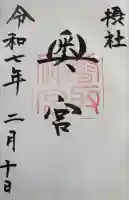 摂社
奥宮
令和七年
二月十日